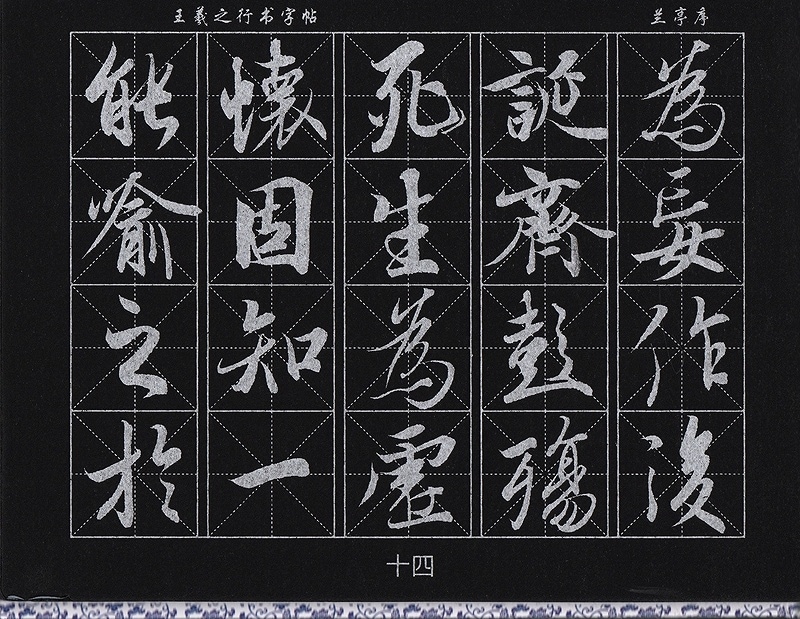 王羲之行书字帖
兰亭序
能喻之於
懷固知一
死生為虛
誕齊彭殤
為妄作後
十四